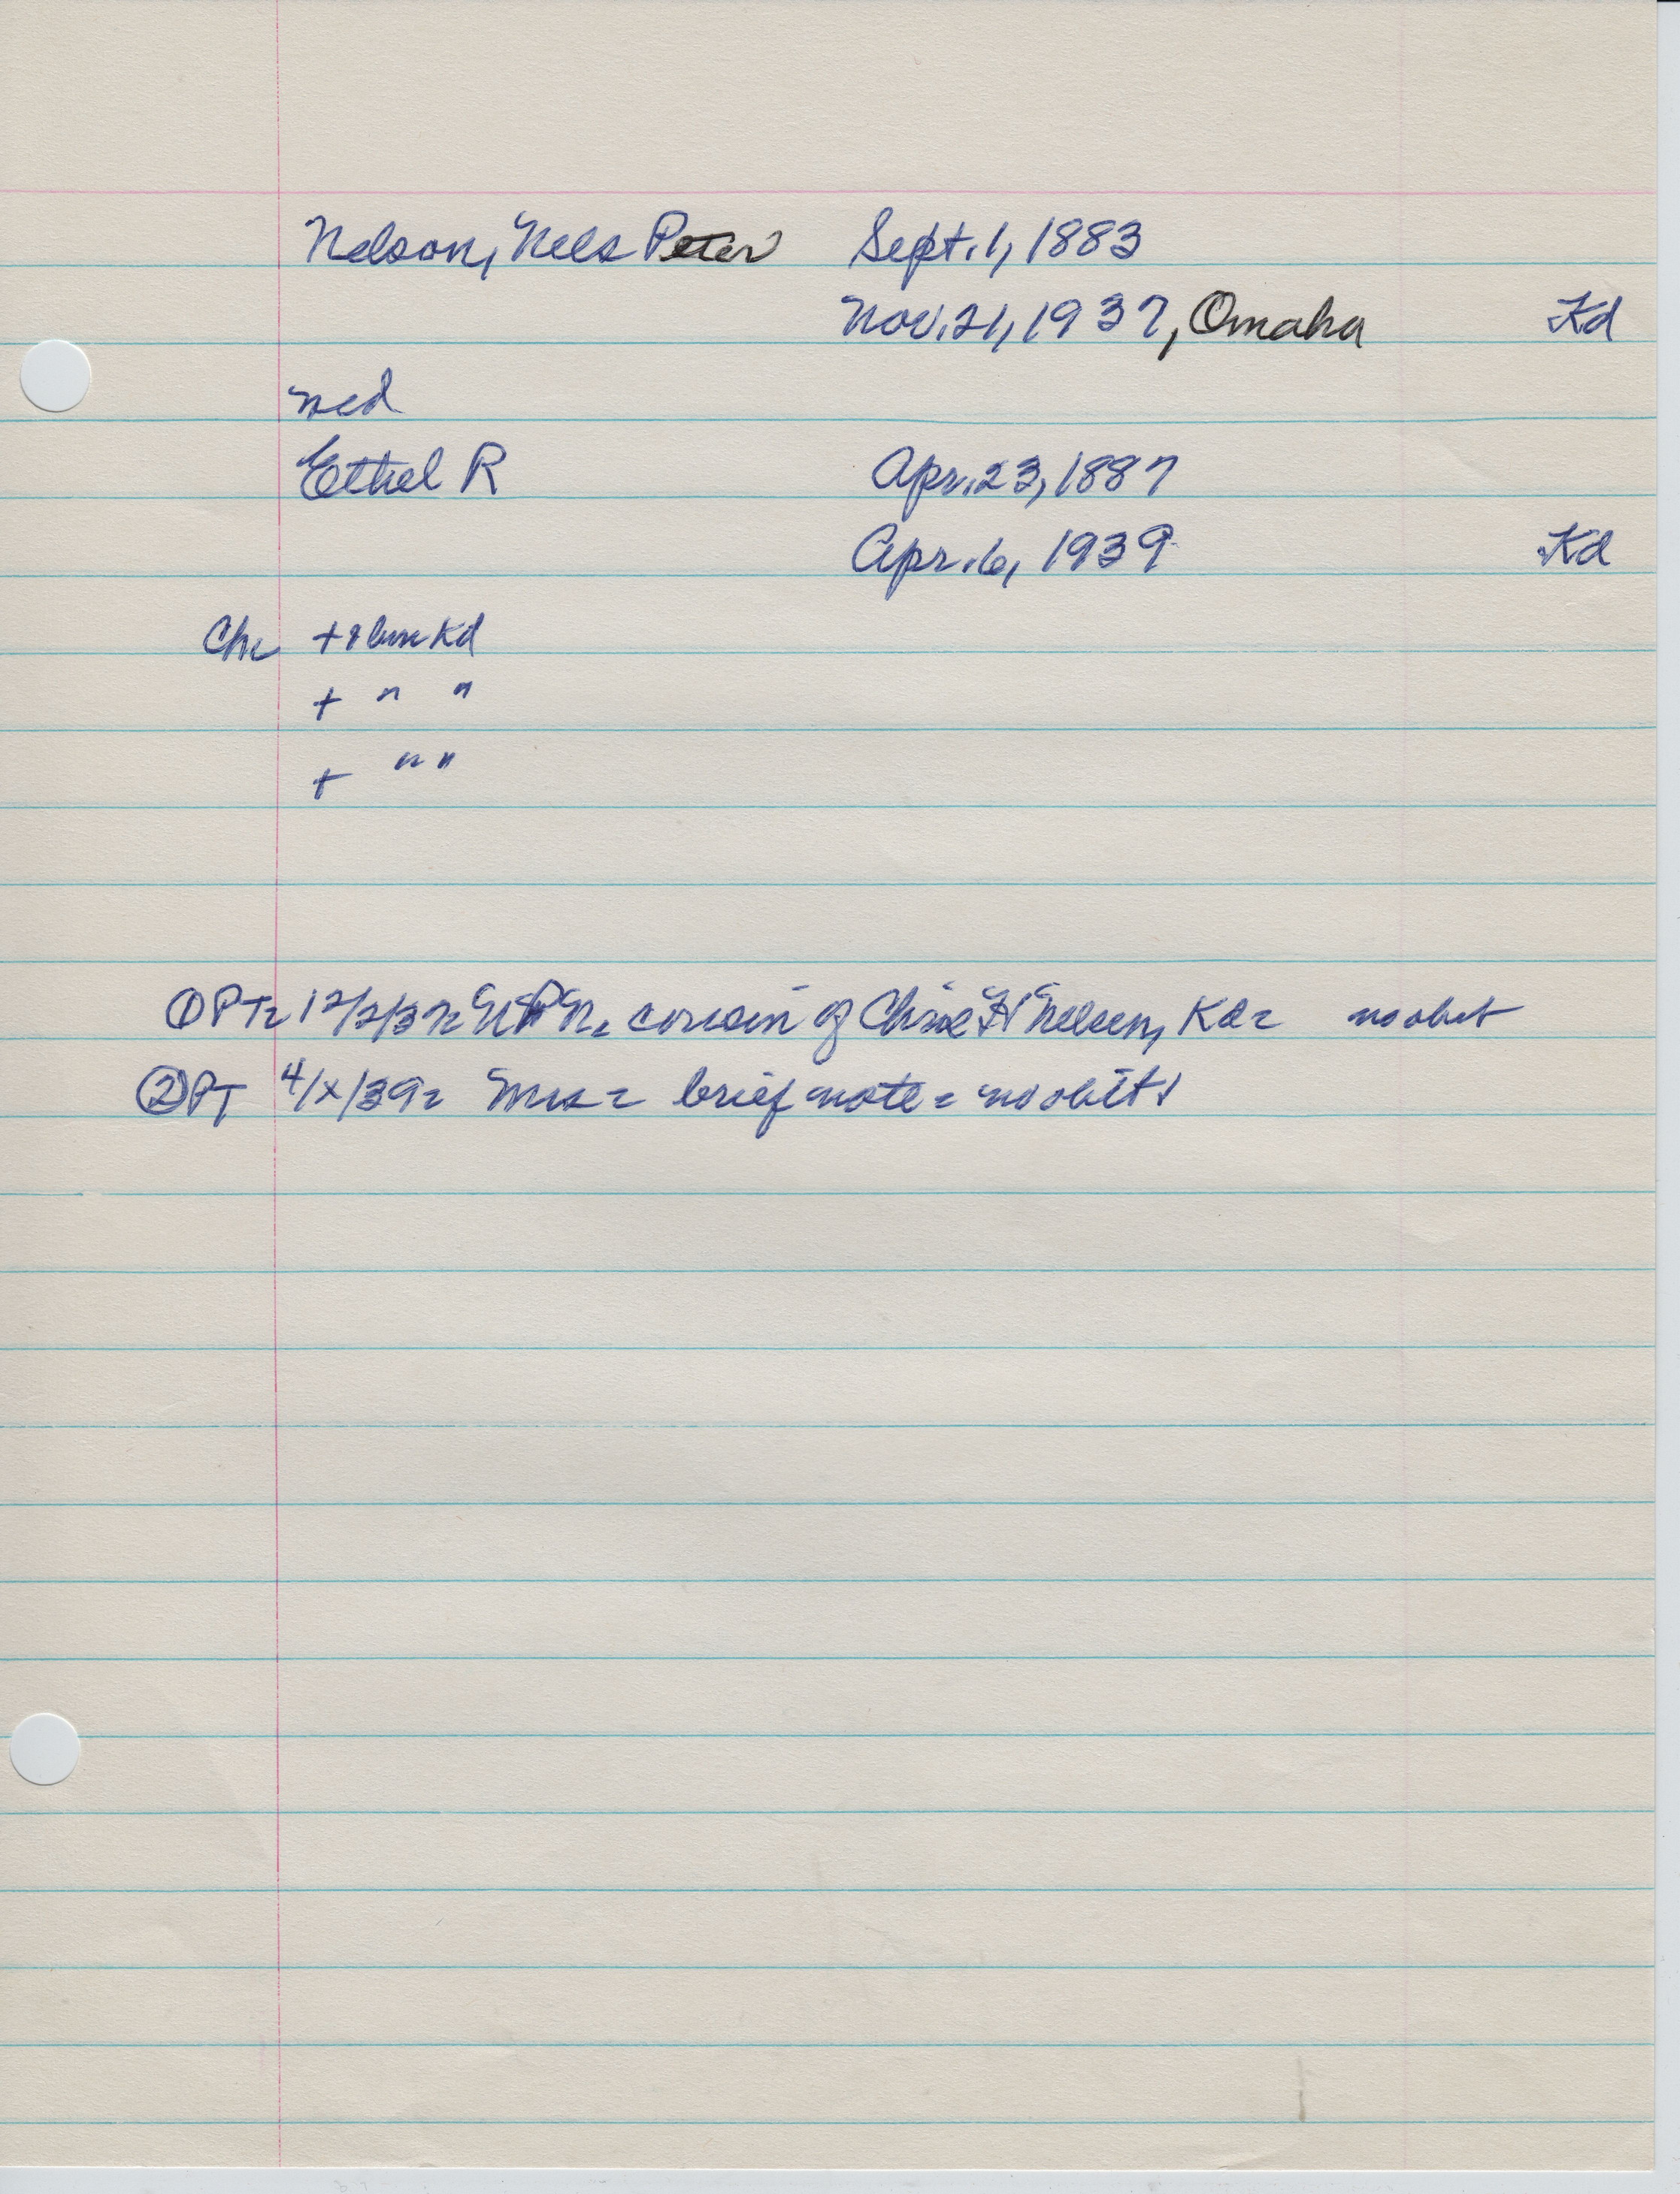 Nelson, Nels Peter Sept. 1, 1883
Nov. 21, 1937, Omaha Kd
med
Ethel R Apr. 23, 1887
Apr. 6, 1939 Kd
Chr + & bur Kd
+ " "
+ " "
① PT= 12/2/37= NPN= cousin of Chris H Nelsen, Kd= no obit
② PT 4/x/39= Mrs= brief note= no obit!